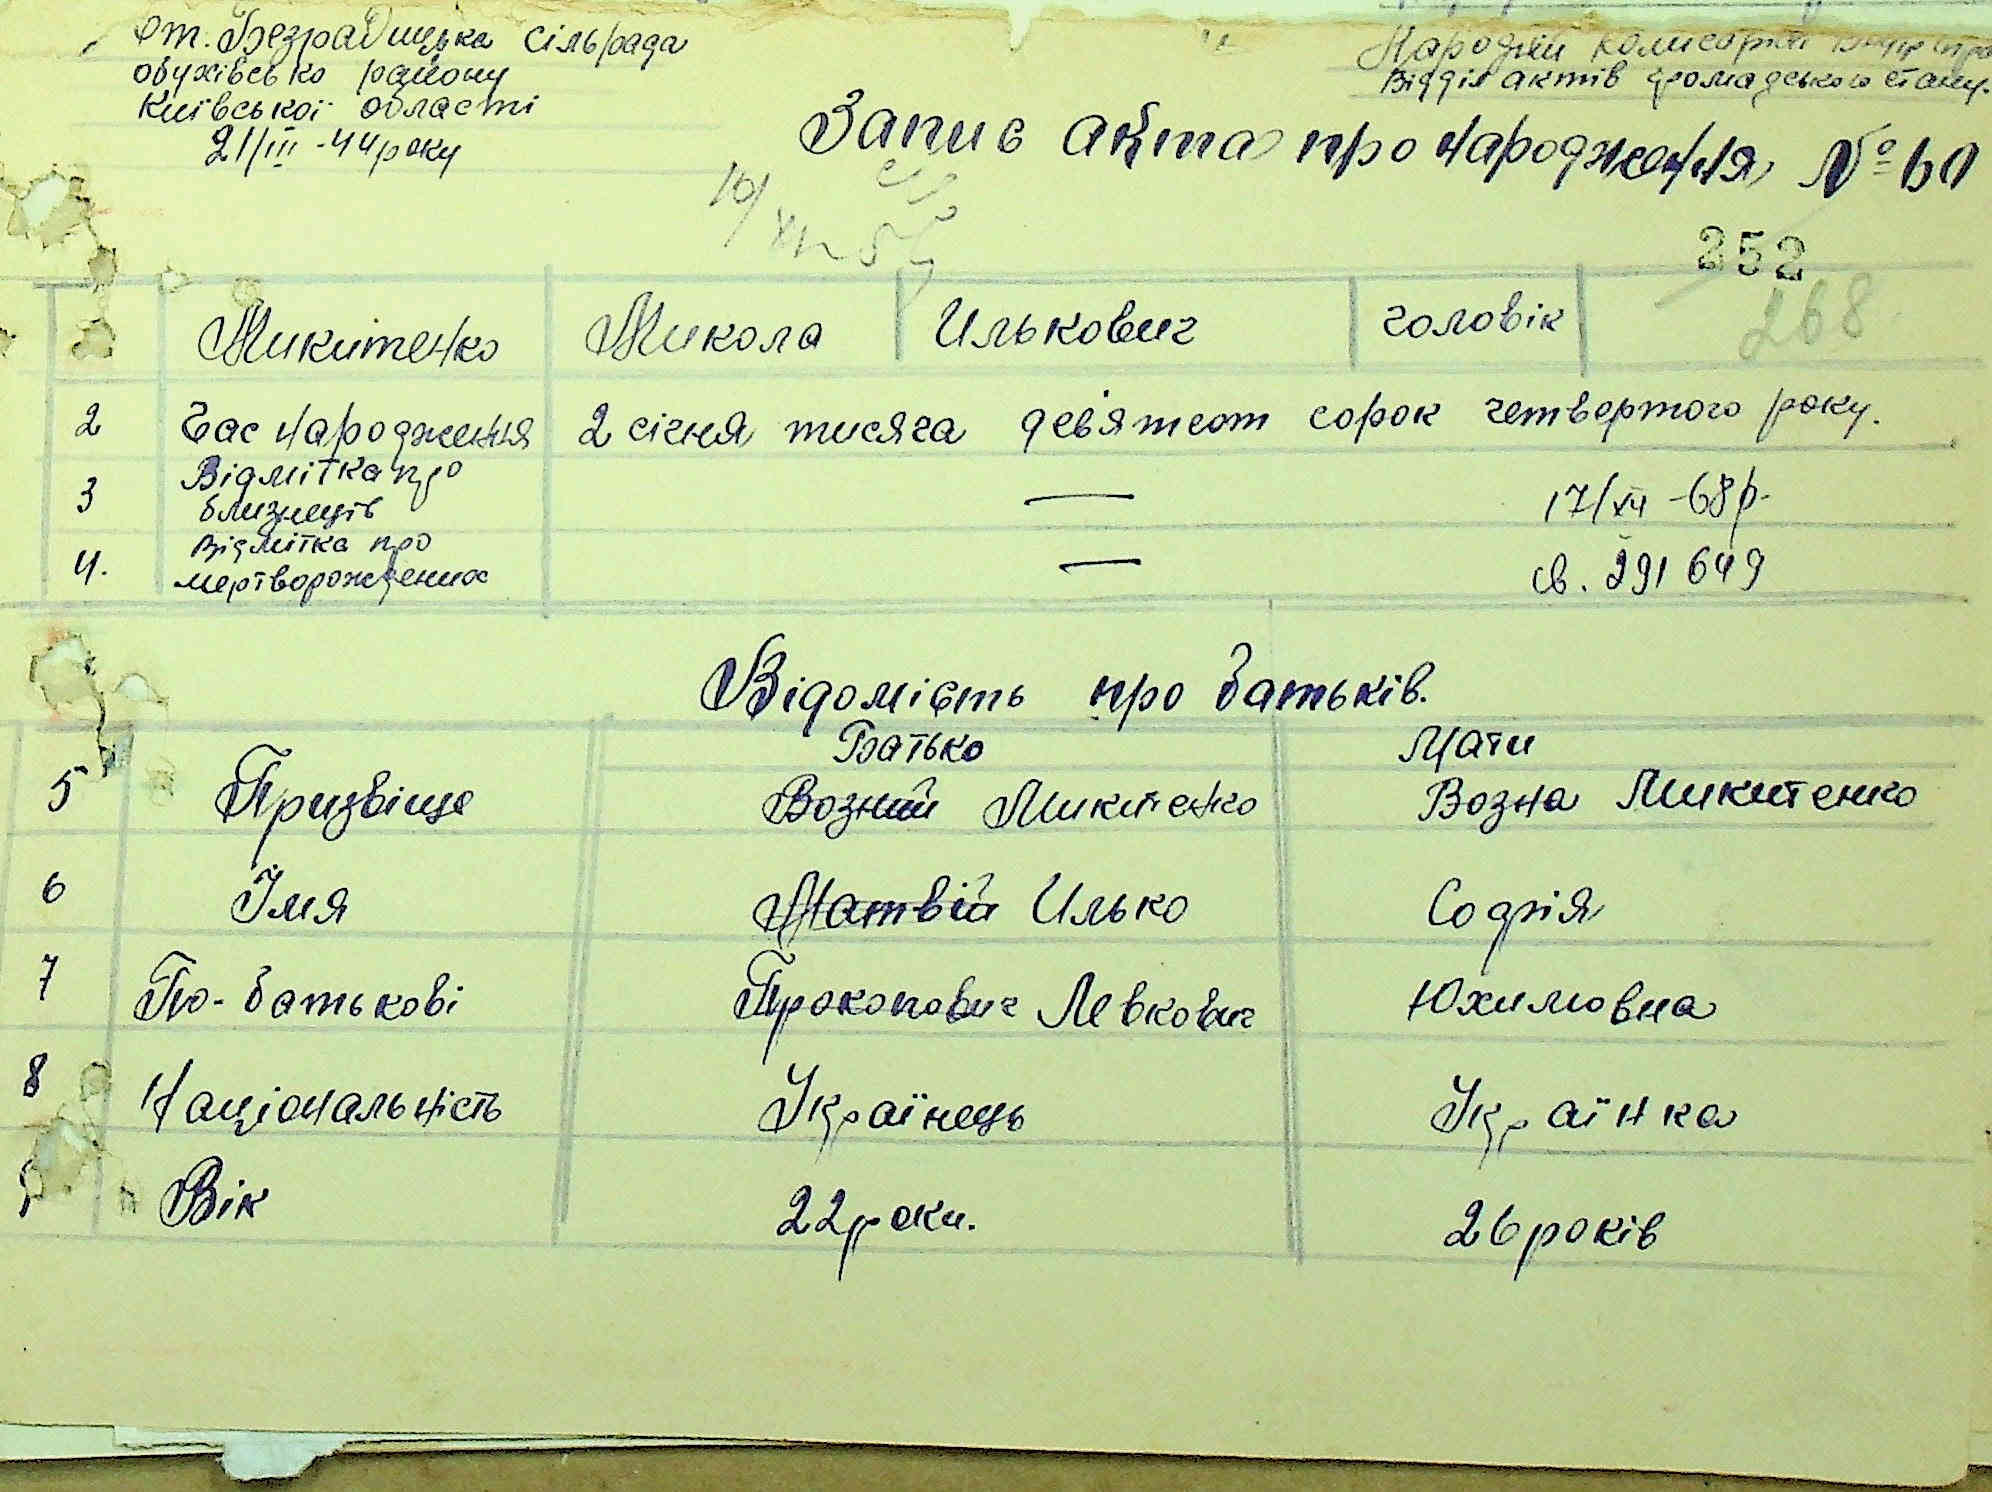 Ст. Безрадицька сільрада
Обухівсько району
Київської області
21/III -44 року
Народній комисаріат внутр
Відділ актів громадського стану.
Запис акта про народження № 60
10/XII 54
252
268
Микитенко Микола Илькович чоловік
2 Час народження 2 січня тисяча девятсот сорок четвертого року.
3 Відмітка про близнеців — 17/XII -68 р.
4. Відмітка про мертворожденних — св. 291649
Відомість про батьків.
Батько Мати
5 Призвіще Возний Микитенко Возна Микитенко
6 Імя Матвій Илько Софія
7 По-батькові Прокопович Левкович Юхимовна
8 Національність Українець Українка
Вік 22 роки. 26 років